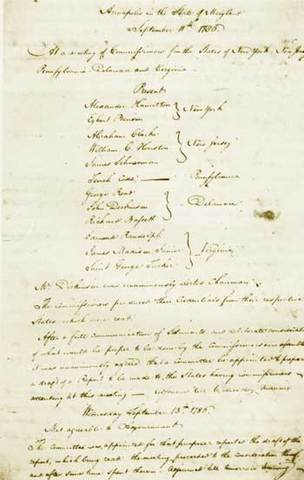 Annapolis in the State of Maryland
September 11th 1786.
At a meeting of Commissioners from the States of New York, New Jersey
Pennsylvania Delaware and Virginia
Present
Alexander Hamilton
Egbert Benson
New York
Abraham Clarke
William C. Houston
James Schureman
New Jersey
Tench Coxe
Pennsylvania
George Read
John Dickinson
Richard Bassett
Delaware
Edmund Randolph
James Madison Junior
Saint George Tucker
Virginia
Mr. Dickinson was unanimously elected Chairman.
The Commissioners produced their Credentials from their respective
States, which were read.
After a full communication of Sentiments, and deliberate consideration
of what would be proper to be done by the Commissioners now assembled
it was unanimously agreed, that a Committee be appointed to prepare
a draft of a Report to be made to the States having Commissioners
attending at this meeting
Wednesday September 13th 1786.
Met agreeable to Adjournment.
The Committee, appointed for that purpose, reported the draft of the
report, which being read, the meeting proceeded to the consideration thereof,
and after some time spent therein, Adjourned till tomorrow Morning